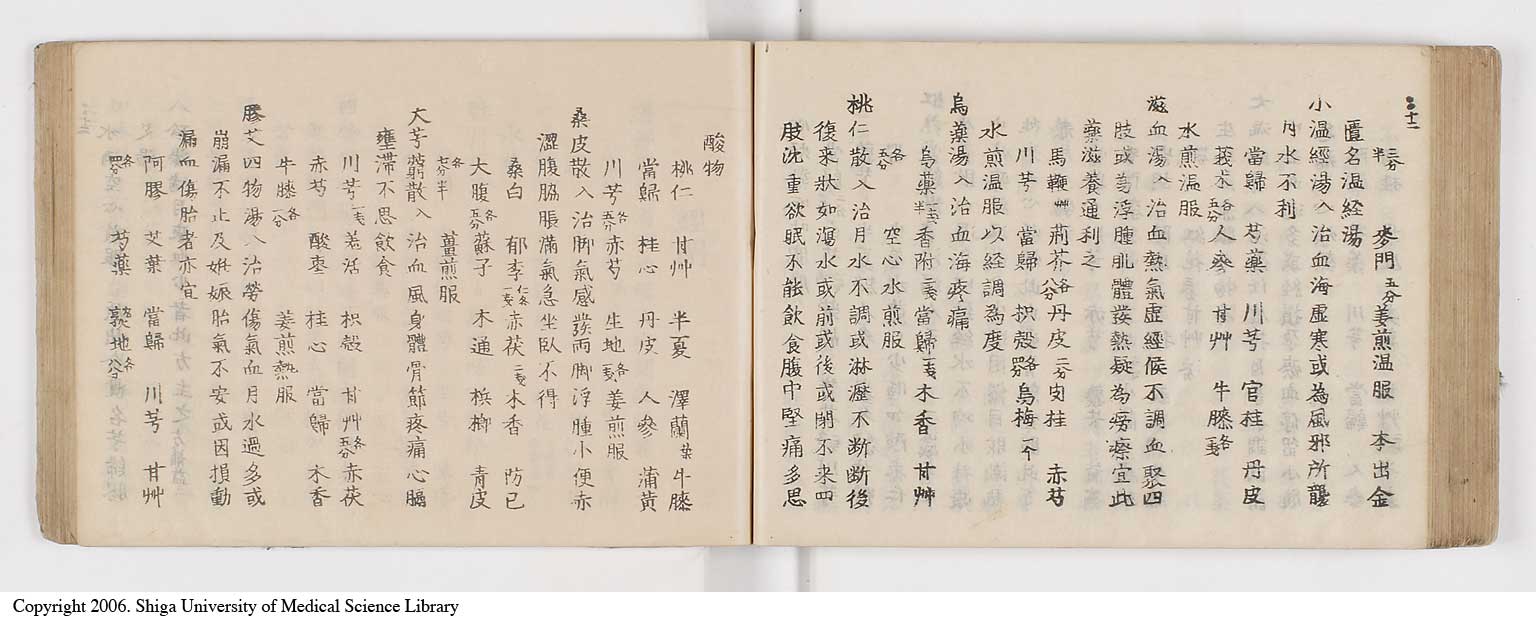 二十一
三分半 麥門五分 姜煎温服 本出金
匱名温経湯
小温經湯入 治血海虚寒或為風邪所襲
月水不利
當歸 芍薬 川芎 官桂 丹皮
莪朮各五分 人參 甘艸 牛膝各一戋
水煎温服
滋血湯入 治血熱氣虚經候不調血聚四
肢或為浮腫肌體發熱疑為癆瘵宜此
藥滋養通利之
馬鞭艸 荊芥各八分 丹皮二分 肉桂 赤芍
川芎 當歸 枳殻各四分 烏梅一个
水煎温服以経調為度
烏薬湯入 治血海疼痛
烏薬一戋半 香附二戋 當歸一戋 木香 甘艸
各五分 空心水煎服
桃仁散入 治月水不調或淋瀝不断断後
復来狀如瀉水或前或後或閉不来四
肢沈重欲眠不能飲食腹中堅痛多思
酸物
桃仁 甘艸 半夏 澤蘭葉 牛膝
當歸 桂心 丹皮 人參 蒲黄
川芎各五分 赤芍 生地各一戋 姜煎服
桑皮散入 治脚氣感發両脚浮腫小便赤
澀腹脇脹滿氣急坐臥不得
桑白 郁李仁各一戋 赤茯二戋 木香 防已
大腹各五分 蘇子 木通 梹榔 青皮
各七分半 薑煎服
大芎藭散入 治血風身體骨節疼痛心膈
壅滞不思飲食
川芎一戋 羗活 枳殻 甘艸各五分 赤茯
赤芍 酸棗 桂心 當歸 木香
牛膝各一分 姜煎熱服
膠艾四物湯入 治勞傷氣血月水過多或
崩漏不止及妊娠胎氣不安或因損動
漏血傷胎者亦宜
阿膠 艾葉 當歸 川芎 甘艸
各四分 芍薬 熟地各八分
Copyright 2006. Shiga University of Medical Science Library